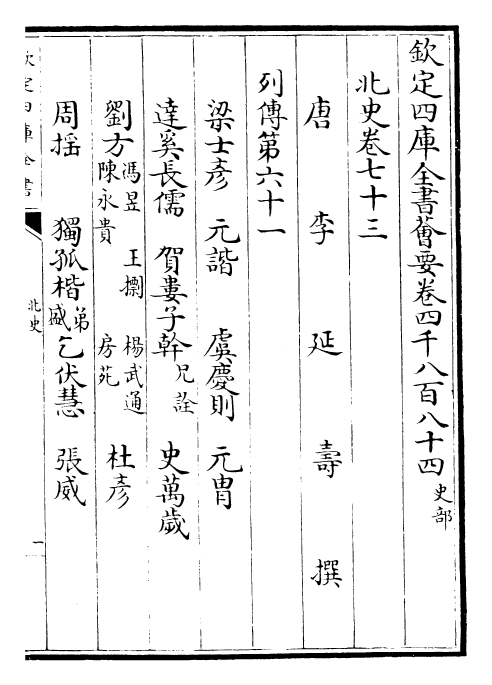 欽定四庫全書薈要卷四千八百八十四 史部
北史卷七十三
唐 李 延 壽 撰
列傳第六十一
梁士彥 元諧 虞慶則 元冑
達奚長儒 賀婁子幹 兄詮 史萬歲
劉方 馮昱 王𢷋 楊武通 陳永貴 房兆 杜彥
周揺 獨孤楷 弟盛 乞伏慧 張威
欽定四庫全書
北史
一